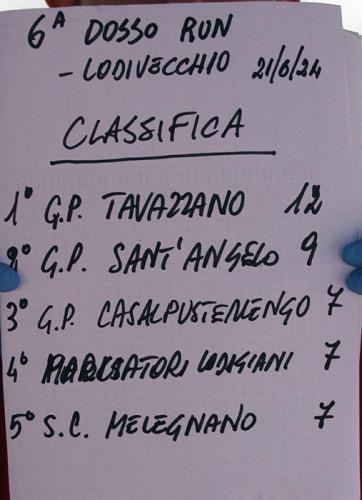 6ᴬ DOSSO RUN
- LODIVECCHIO 21/6/24
CLASSIFICA
1° G.P. TAVAZZANO 12
2° G.P. SANT'ANGELO 9
3° G.P. CASALPUSTERLENGO 7
4° LODIGIANI 7
5° S.C. MELEGNANO 7